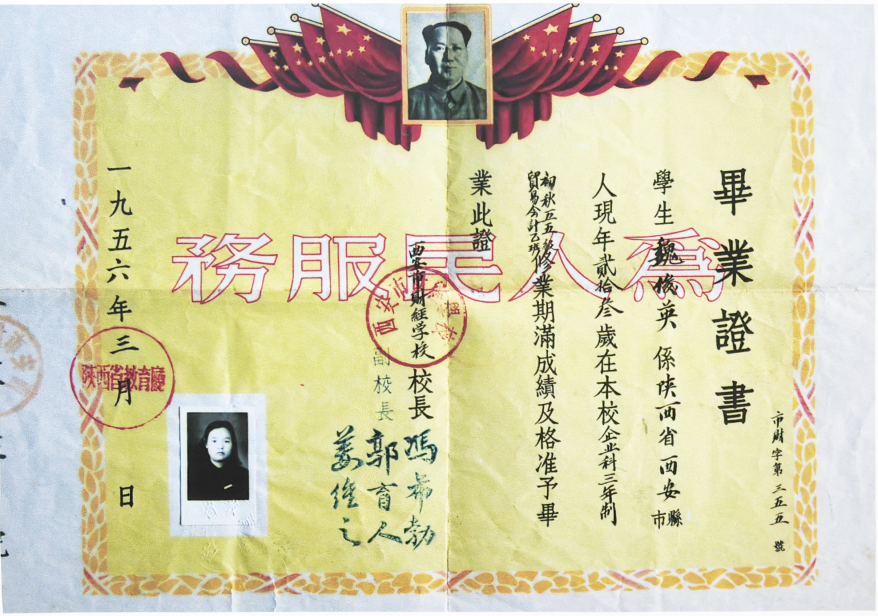 畢業證書
市財字第三五五號
學生魏俊英係陝西省西安市縣
人現年貳拾叁歲在本校企业科三年制
初秋五五級
貿易会計乙班
修業期滿成績及格准予畢
業此證
為人民服務
西安市財經學校校長馮希勃
副校長郭育人
姜維之
一九五六年三月日
陝西省教育廳